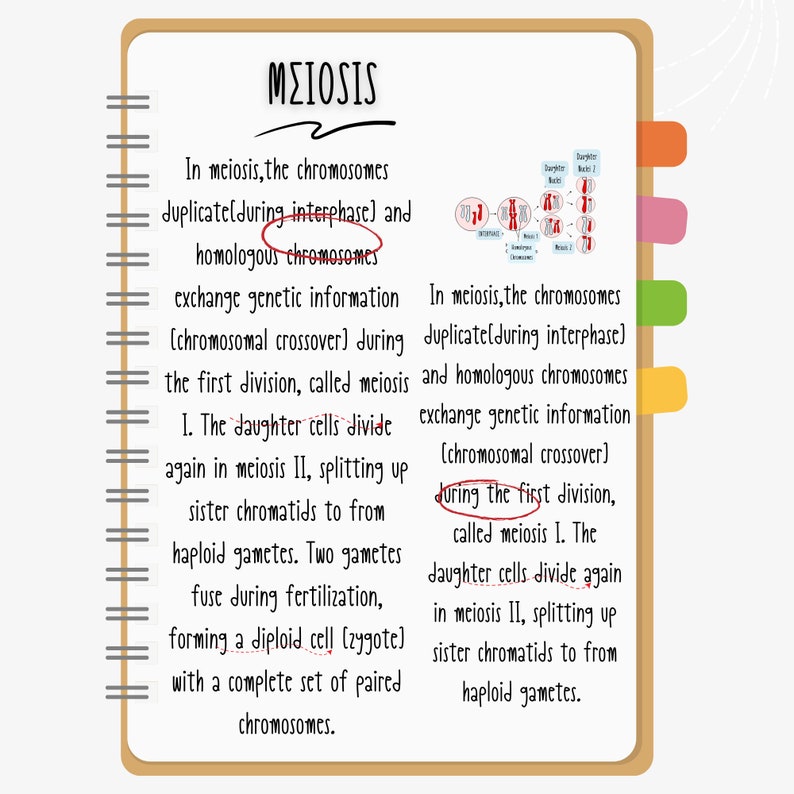 MΣIOSIS
In meiosis,the chromosomes
duplicate(during interphase) and
homologous chromosomes
exchange genetic information
(chromosomal crossover) during
the first division, called meiosis
I. The daughter cells divide
again in meiosis II, splitting up
sister chromatids to from
haploid gametes. Two gametes
fuse during fertilization,
forming a diploid cell (zygote)
with a complete set of paired
chromosomes.
Daughter
Nuclei
Daughter
Nuclei 2
INTERPHASE
Meiosis 1
Homologous
Chromosomes
Meiosis 2
In meiosis,the chromosomes
duplicate(during interphase)
and homologous chromosomes
exchange genetic information
(chromosomal crossover)
during the first division,
called meiosis I. The
daughter cells divide again
in meiosis II, splitting up
sister chromatids to from
haploid gametes.